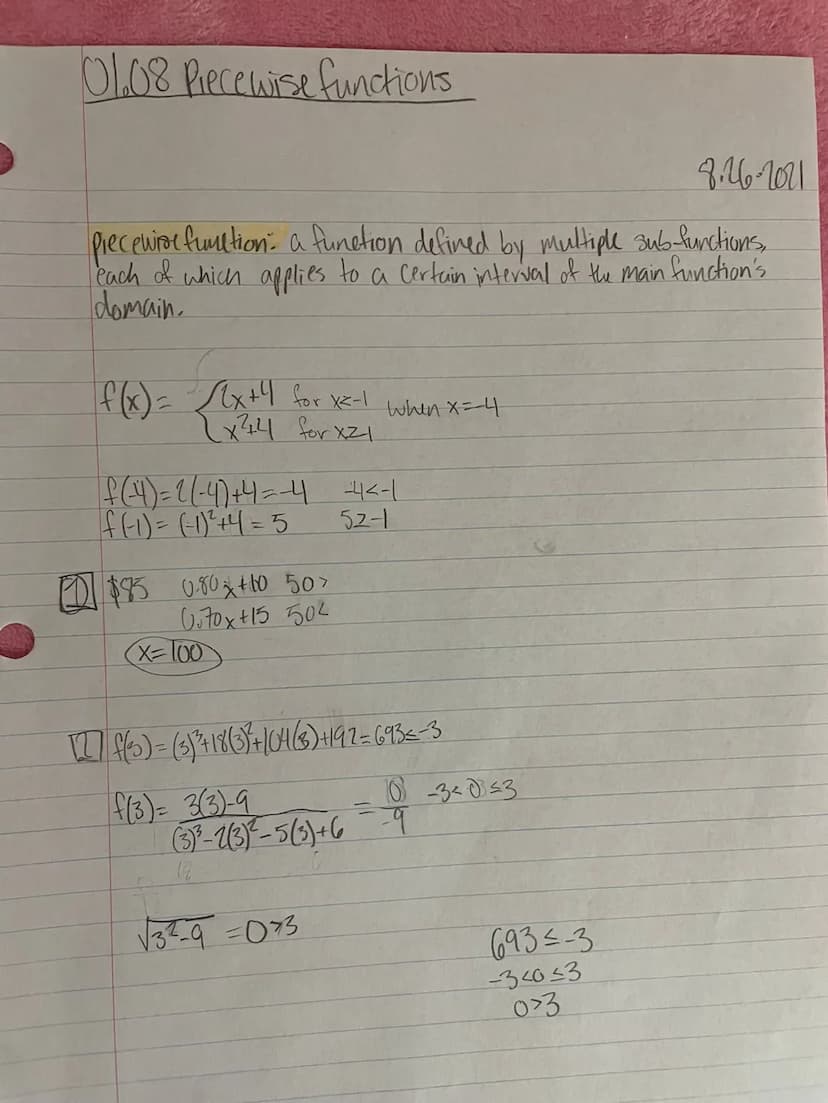 01.08 Piecewise functions
8.26.2021
piecewise function: a function defined by multiple sub-functions,
each of which applies to a certain interval of the main function's
domain.
f(x)= { 2x+4 for x<-1 when x=-4
x²+4 for x≥-1
f(-4)=2(-4)+4=-4 -4<-1
f(-1)=(-1)²+4=5 5≥-1
1 $85 0.80x+10 50>
0.70x+15 50<
x=100
2 f(3)=(3)³+18(3)²+104(3)+192=693≤-3
f(3)= 3(3)-9 / (3)³-2(3)²-5(3)+6 = 0/-9 -3<0≤3
√3²-9 =0>3
693≤-3
-3<0≤3
0>3